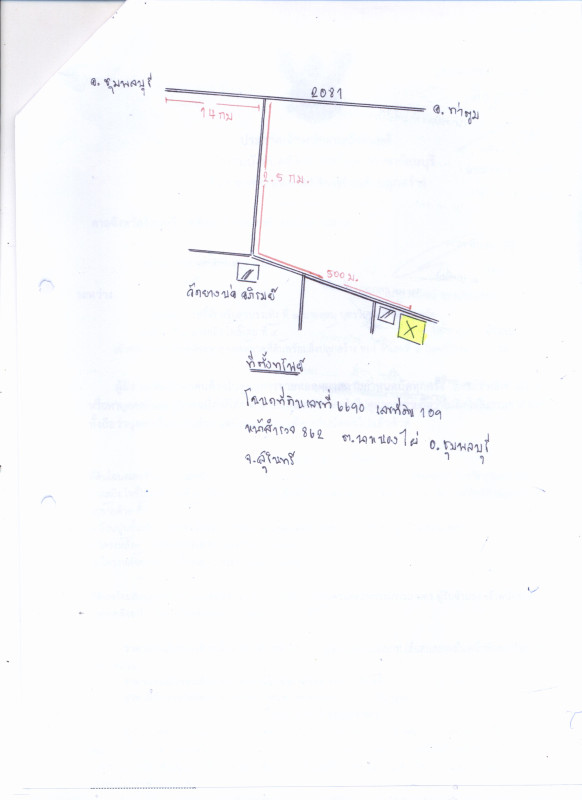 อ. ชุมพลบุรี
2081
อ. ท่าตูม
14 กม
2.5 กม.
500 ม.
วัดยางบ่อภิรมย์
X
ที่ตั้งทรัพย์
โฉนดที่ดินเลขที่ 6690 เลขที่ดิน 109
หน้าสำรวจ 862 ต.นาหนองไผ่ อ.ชุมพลบุรี
จ.สุรินทร์